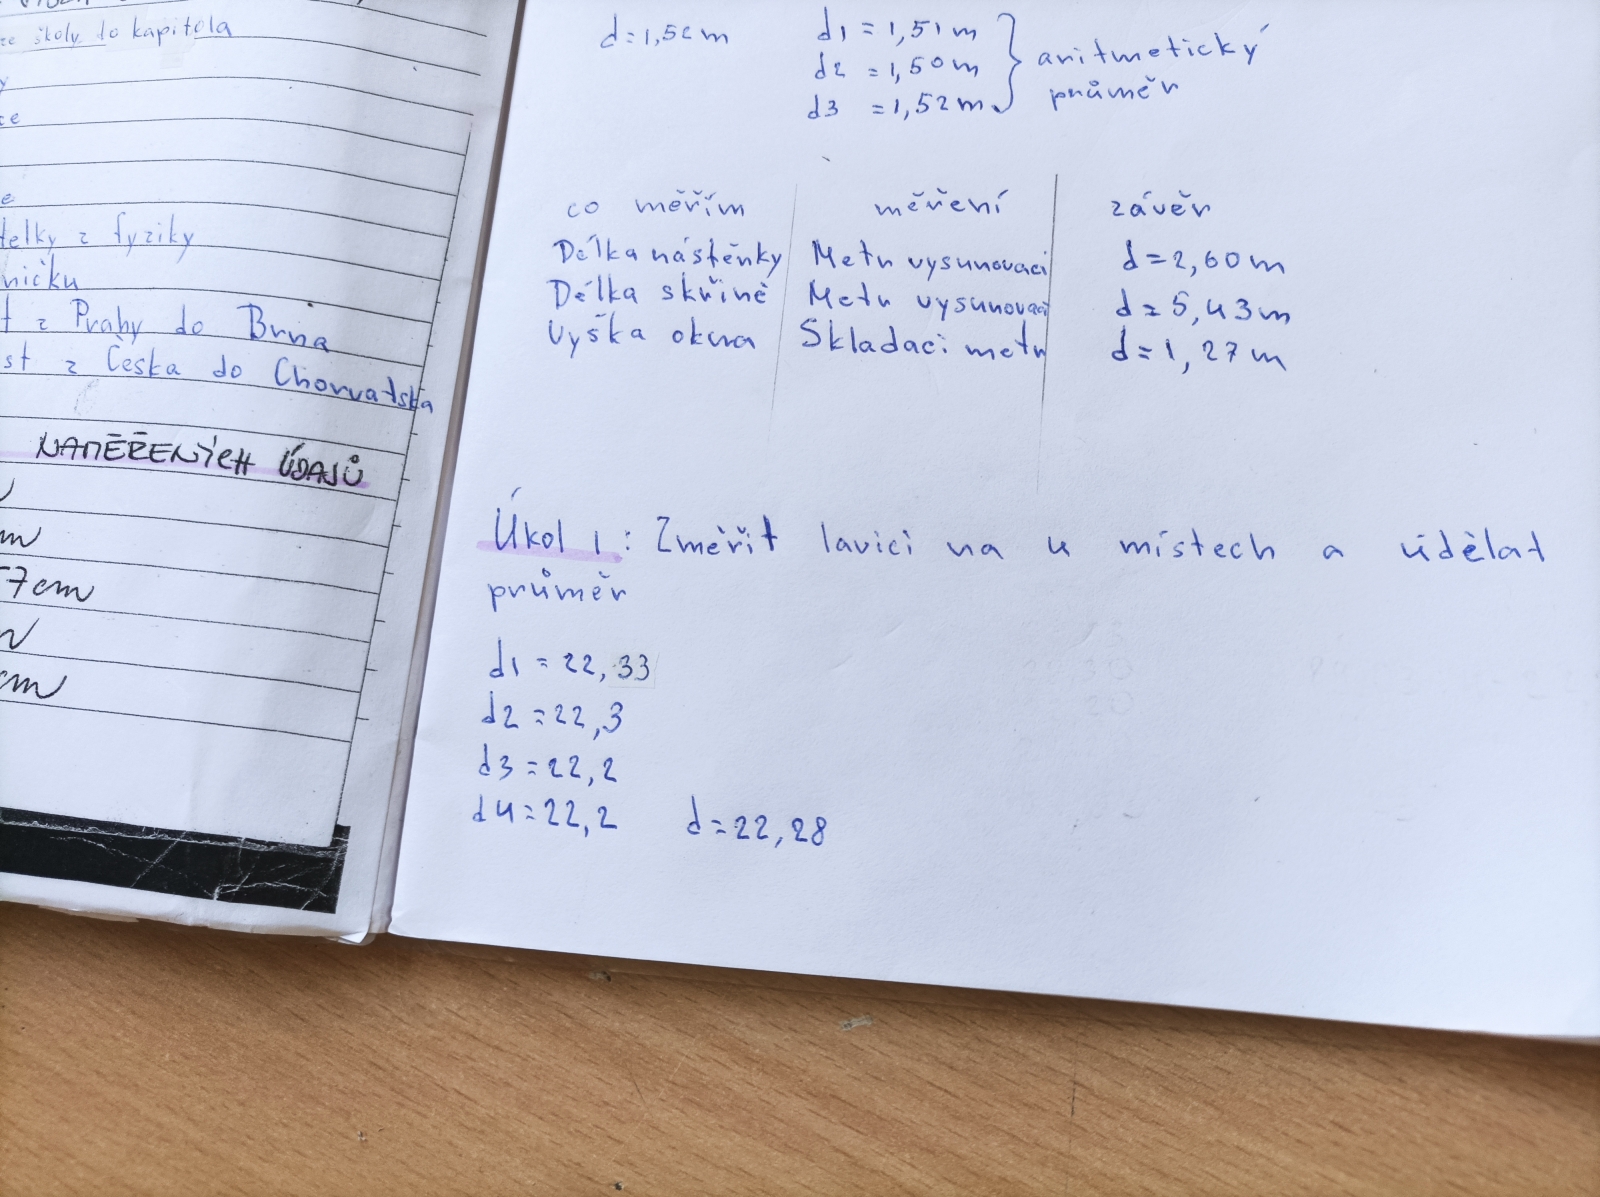 ze školy do kapitola
telky z fyziky
ničku
t z Prahy do Brna
st z Česka do Chorvatska
NAMĚŘENÝCH ÚDAJŮ
m
57cm
cm
d=1,52m
d1 = 1,51m
d2 = 1,50m
d3 = 1,52m
aritmetický
průměr
co měřím měření závěr
Délka nástěnky Metr vysunovací d=2,60m
Délka skříně Metr vysunovací d=5,43m
Vyška okna Skladaci metr d=1,27m
Úkol 1: Změřit lavici na 4 místech a údělat
průměr
d1 = 22,33
d2 = 22,3
d3 = 22,2
d4 = 22,2 d=22,28